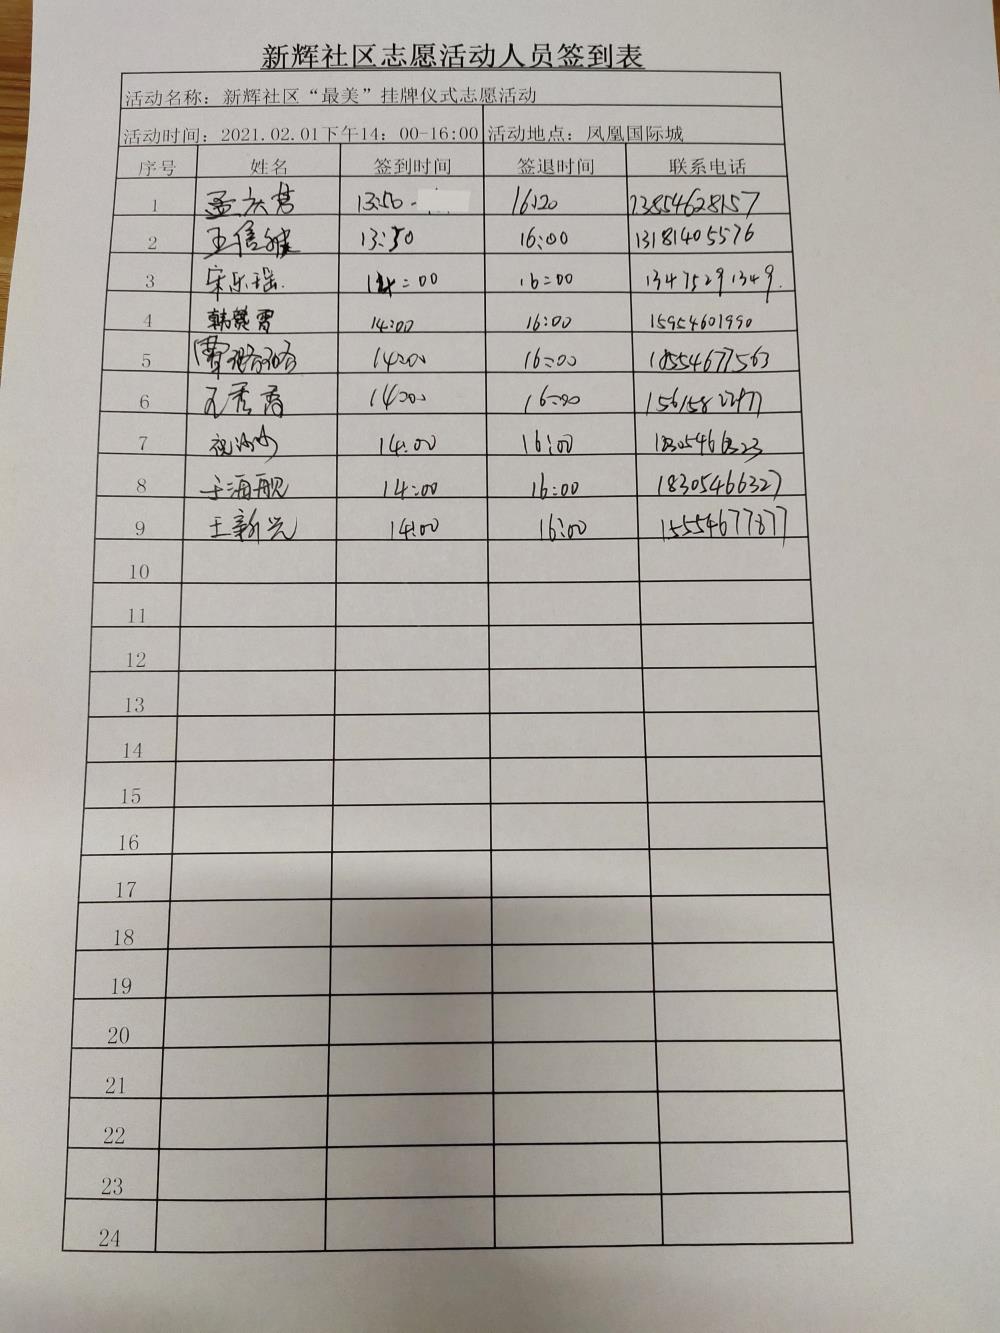 新辉社区志愿活动人员签到表
活动名称：新辉社区“最美”挂牌仪式志愿活动
活动时间：2021.02.01下午14：00-16:00 活动地点：凤凰国际城
序号 姓名 签到时间 签退时间 联系电话
1 孟庆营 13:50- 16:20 13854628157
2 王信健 13:50 16:00 13181405576
3 宋乐瑶. 14:00 16:00 13475291349.
4 韩 雪 14:00 16:00 15954601990
5 曹璐璐 14:00 16:00 18554677563
6 秀 14:00 16:00
7 祝沙沙 14:00 16:00
8 于海舰 14:00 16:00 18305466327
9 王新兴 14:00 16:00 15554677877
10
11
12
13
14
15
16
17
18
19
20
21
22
23
24